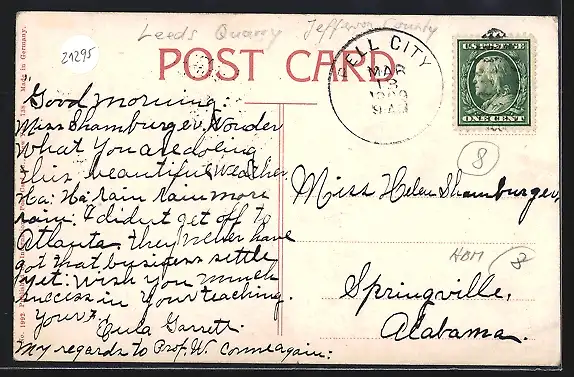 Leeds Quarry Jefferson County
21295
POST CARD.
PELL CITY
MAR
13
9 AM
U.S. POSTAGE
ONE CENT
Made in Germany.
No. 1992.
"Good morning:"
Miss Shamburger. Wonder
what you are doing
this beautiful weather.
Ha: Ha: rain rain more
rain: I didn't get off to
Atlanta. They never have
got that business settle
yet: Wish you much
success in your teaching.
Your F.
Eula Garrett.
My regards to Prof. W. Come again:
Miss Helen Shamburger,
Springville,
Alabama.
8
HBM
8